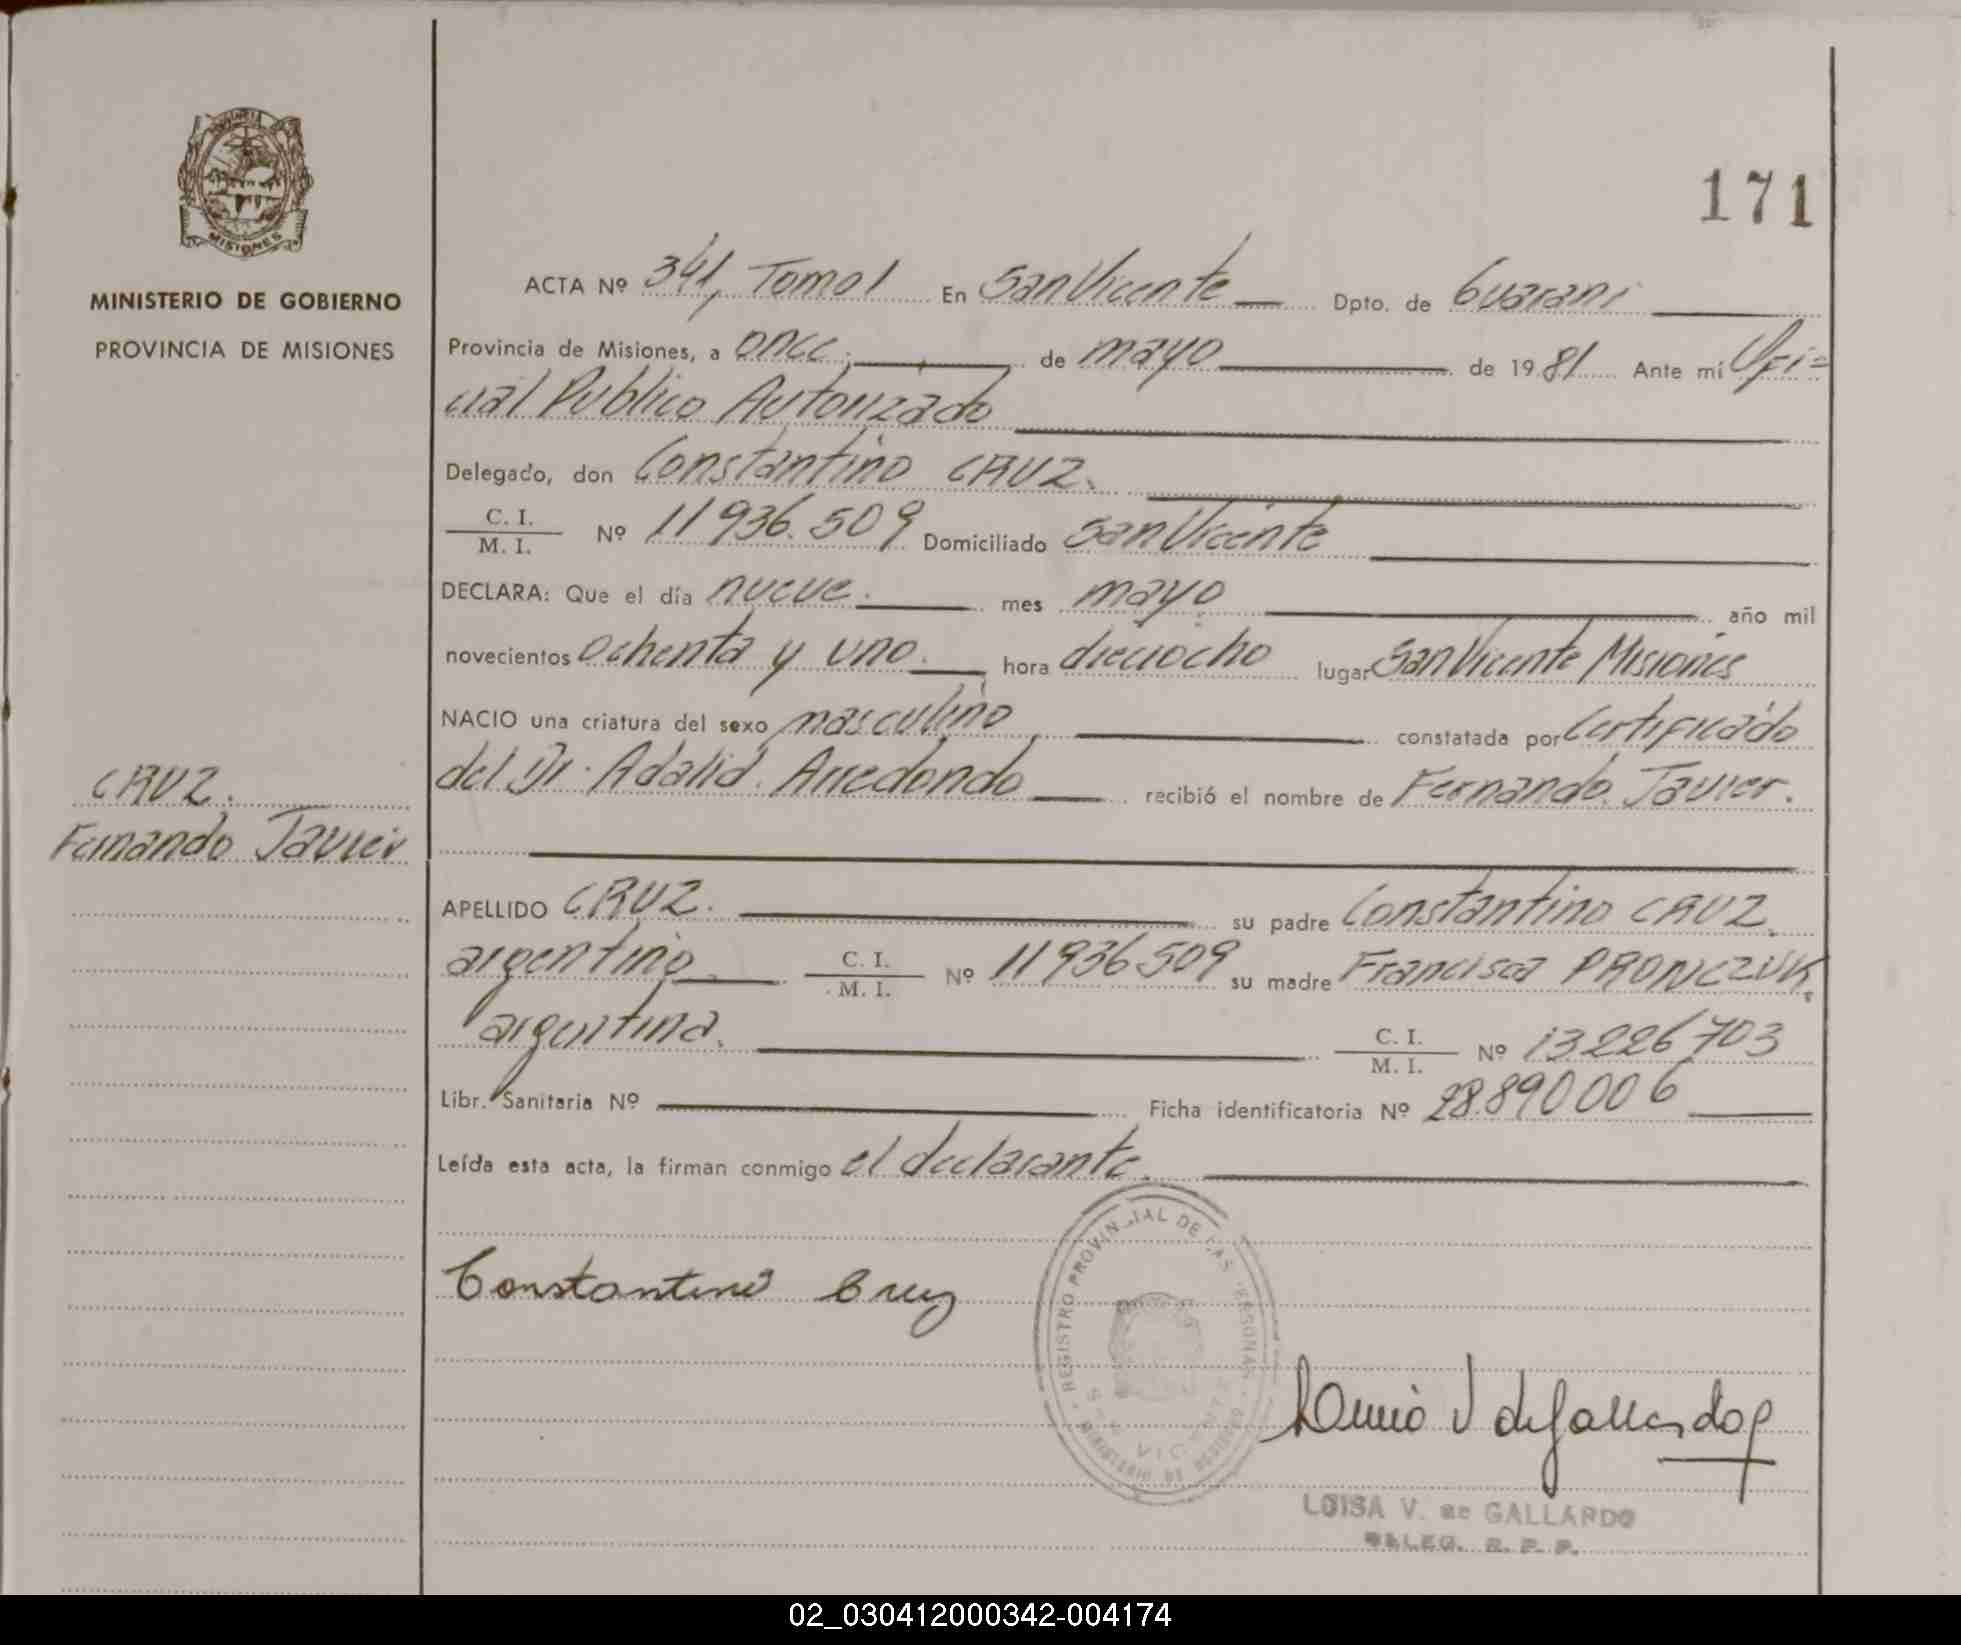 171
MISIONES
MINISTERIO DE GOBIERNO
PROVINCIA DE MISIONES
ACTA Nº 341, Tomo I En San Vicente Dpto. de Guarani
Provincia de Misiones, a once de mayo de 1981 Ante mí Ofi=
cial Publico Autorizado
Delegado, don Constantino CRUZ.
C. I.
M. I. Nº 11936.509 Domiciliado San Vicente
DECLARA: Que el día nueve. mes mayo año mil
novecientos ochenta y uno. hora dieciocho lugar San Vicente Misiones
NACIO una criatura del sexo masculino constatada por Certificado
del Dr. Adalid. Arredondo recibió el nombre de Fernando Javier.
CRUZ.
Fernando Javier
APELLIDO CRUZ. su padre Constantino CRUZ.
argentino C. I.
M. I. Nº 11936509 su madre Francisca PRONCZUK.
argentina. C. I.
M. I. Nº 13226703
Libr. Sanitaria Nº Ficha identificatoria Nº 28.890006
Leída esta acta, la firman conmigo el declarante.
Constantino Cruz
REGISTRO PROVINCIAL DE LAS PERSONAS
VICENTE
V de Gallardo
LUISA V. de GALLARDO
DELEG. R. P. P.
02_030412000342-004174